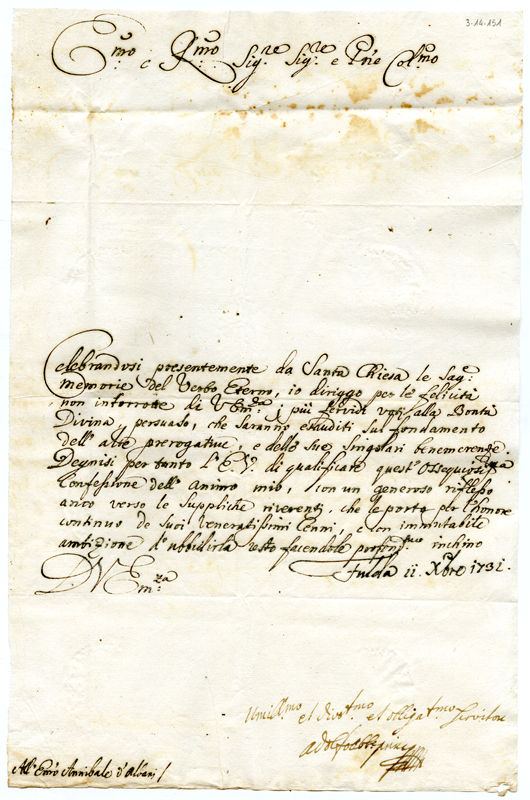 3-14-151
E.mo e R.mo Sig.re Sig.re e P.ne Col.mo
Celebrandosi presentemente da Santa Chiesa le Sag.e
memorie del Verbo Eterno, io dirigo per le felicità
non interrotte di V. Em.za i più fervidi voti alla Bontà
Divina, persuaso, che saranno esauditi sul fondamento
dell' alte prerogative, e delle sue singolari benemerenze.
Degnisi per tanto l' E. V. di qualificare quest' ossequiosa
Confessione dell' animo mio, con un generoso riflesso
anco verso le suppliche riverenti, che le porto per l' honore
continuo de suoi veneratissimi Cenni, e con immutabile
ambizione d' ubbidirla resto facendole profond.mo inchino
Fulda 11. Xbre 1731.
D. V. Em.za
Umill.mo et divot.mo et obligat.mo Servitore
All' Em.o Annibale d' Albani /